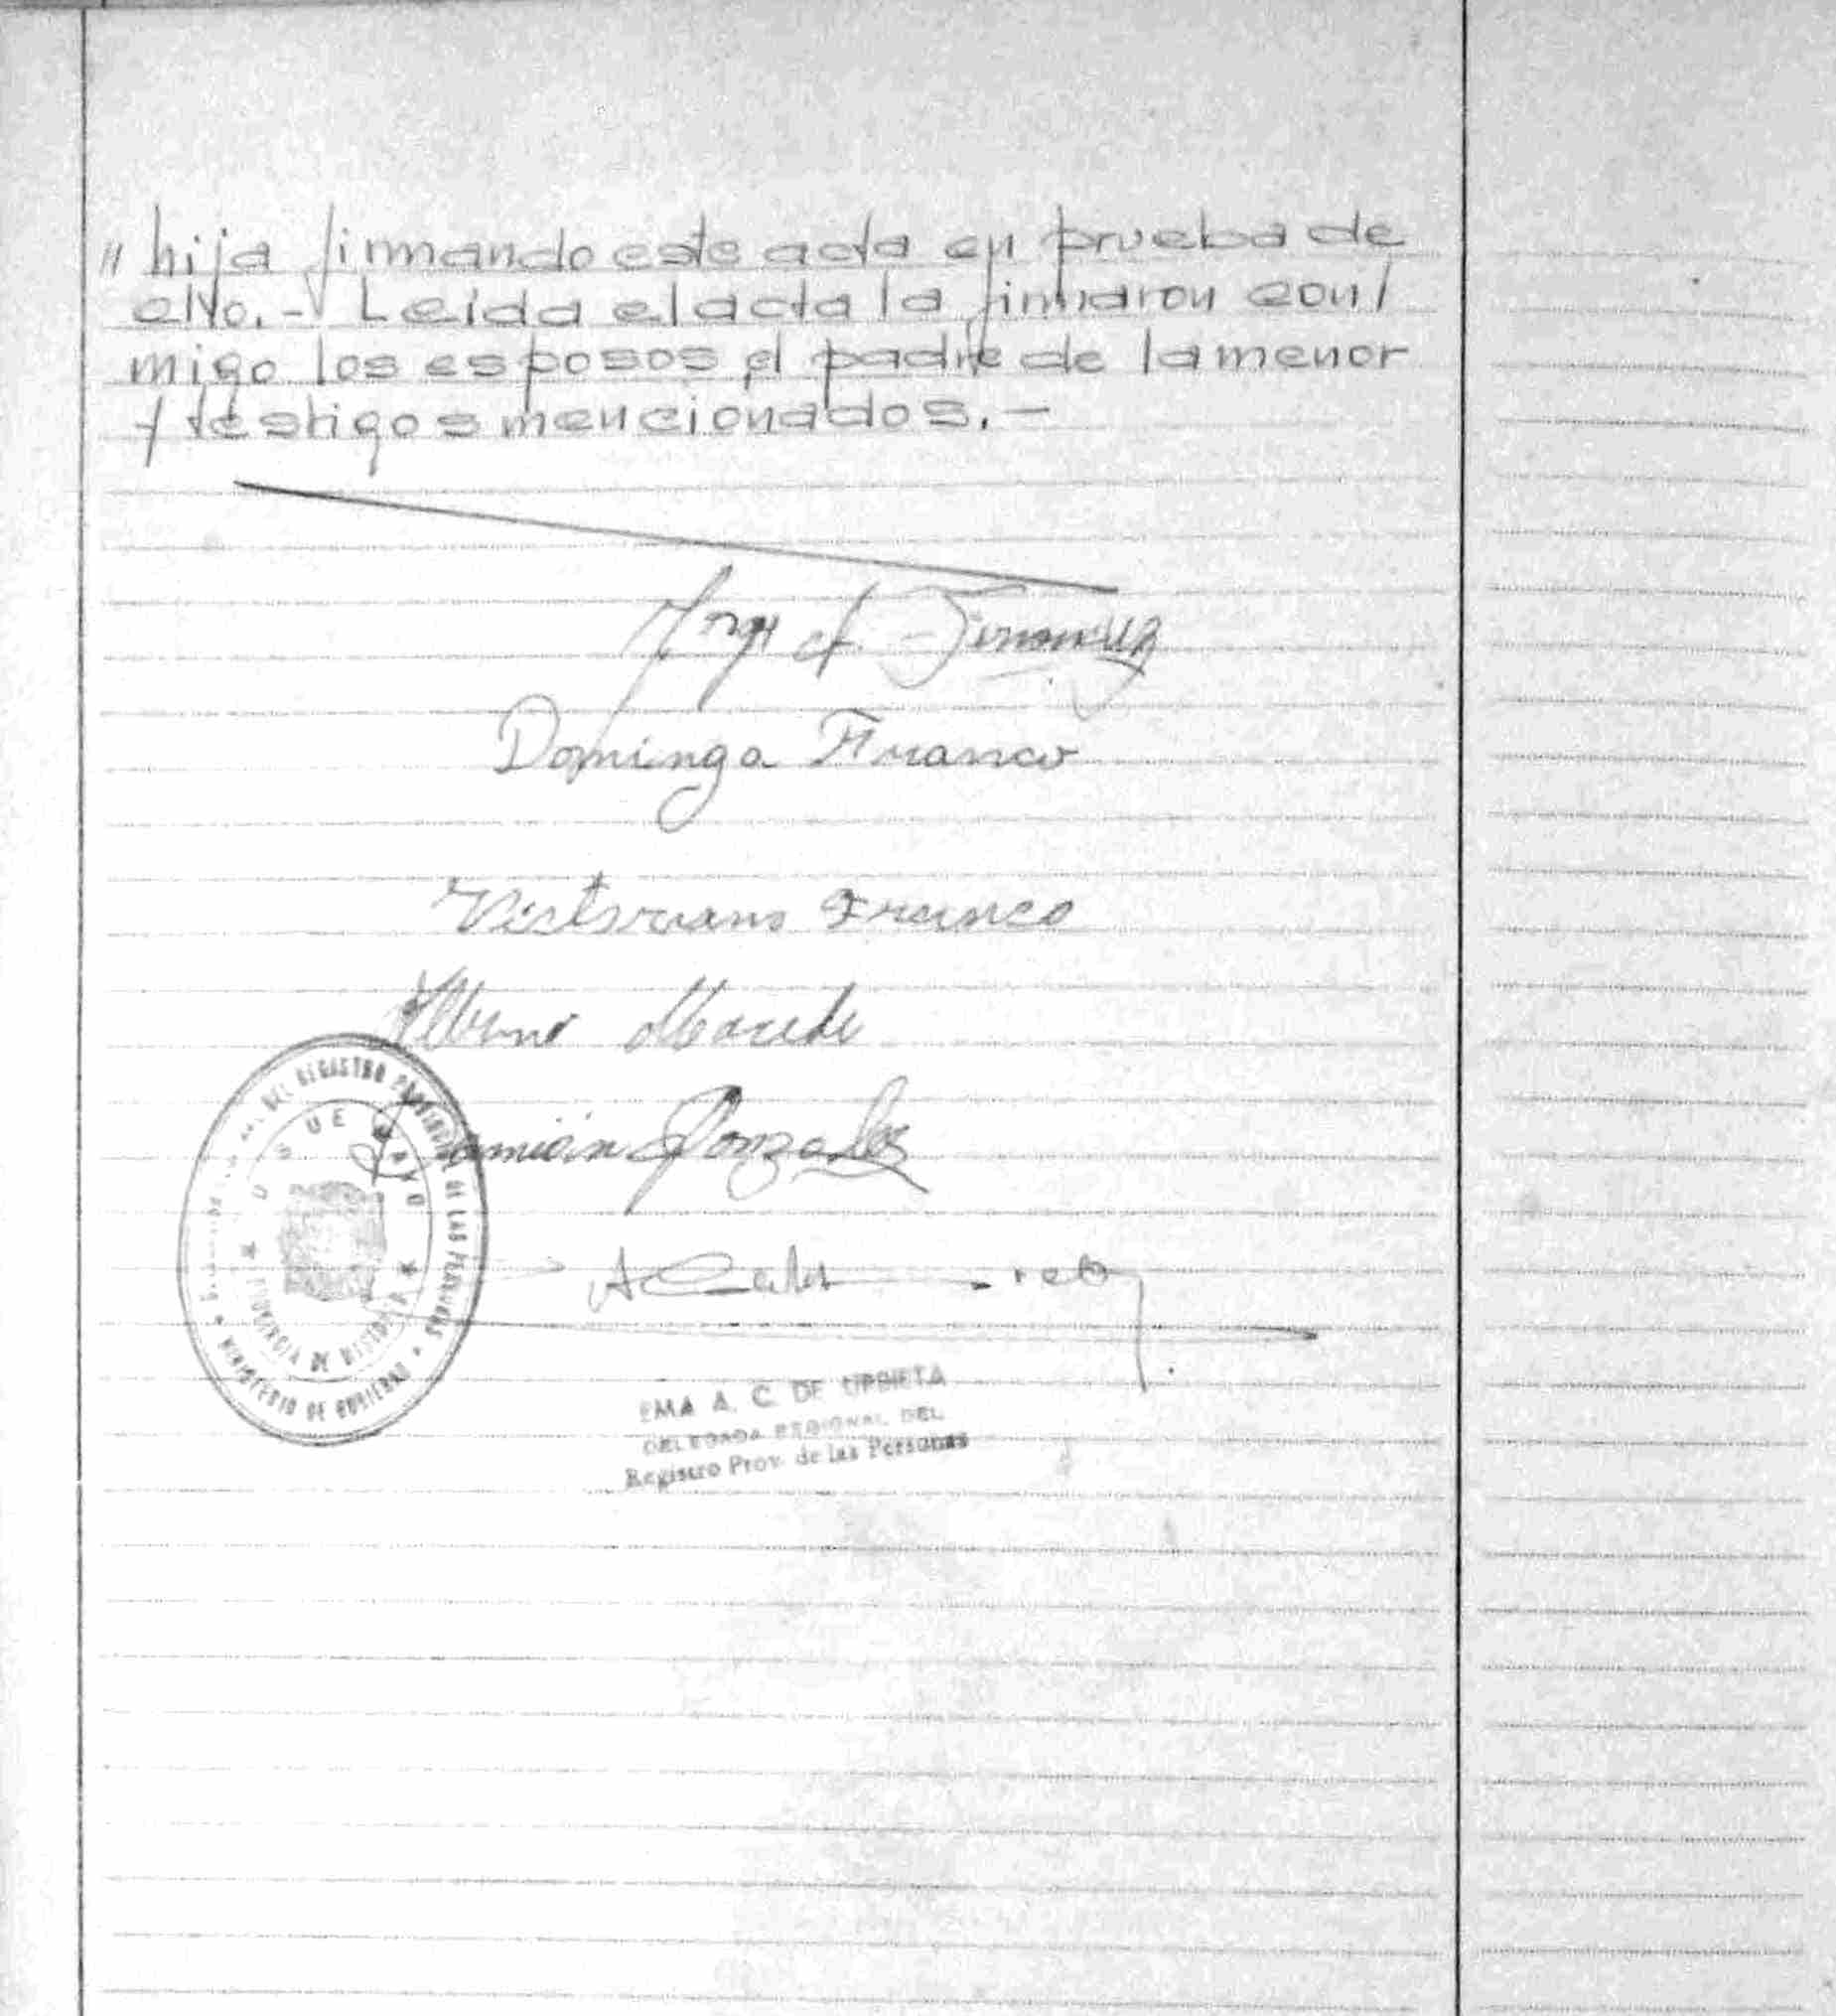 " hija firmando este acta en prueba de
ello.- Leída el acta la firmaron con/
migo los esposos el padre de la menor
y testigos mencionados.-
Jorge A. Jimenez
Dominga Franco
Victoriano Franco
Damián Gonzalez
DEL REGISTRO PROVINCIAL DE LAS PERSONAS
MINISTERIO DE GOBIERNO
25 DE MAYO
PROVINCIA DE MISIONES
EMA A. C. DE URBIETA
DELEGADA REGIONAL DEL
Registro Prov. de las Personas